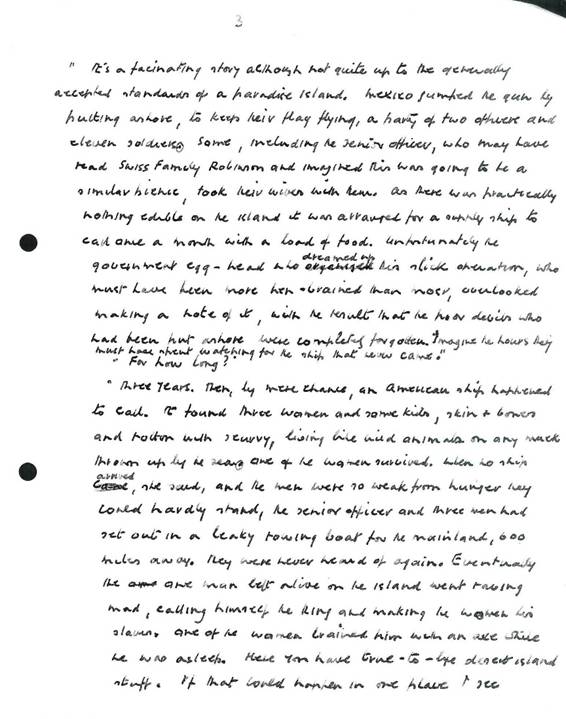 3
" It's a facinating story although not quite up to the generally
accepted standards of a paradise island. Mexico jumped the gun by
putting ashore, to keep their flag flying, a party of two officers and
eleven soldiers. Some, including the senior officer, who may have
read Swiss Family Robinson and imagined this was going to be a
similar picnic, took their wives with them. As there was practically
nothing edible on the island it was arranged for a supply ship to
call once a month with a load of food. Unfortunately the
government egg-head who dreamed up this slick operation, who
must have been more hen-brained than most, overlooked
making a note of it, with the result that the poor devils who
had been put ashore were completely forgotten. Imagine the hours they
must have spent watching for the ship that never came."
" For how long?"
" Three years. Then, by mere chance, an American ship happened
to call. It found three women and some kids, skin + bones
and rotten with scurvy, living like wild animals on any muck
thrown up by the sea. One of the women survived. When no ship
arrived, she said, and the men were so weak from hunger they
could hardly stand, the senior officer and three men had
set out in a leaky rowing boat for the mainland, 600
miles away. They were never heard of again. Eventually
the one man left alive on the island went raving
mad, calling himself the King and making the women his
slaves. One of the women brained him with an axe while
he was asleep. Here you have true-to-life desert island
stuff. If that could happen in one place I see